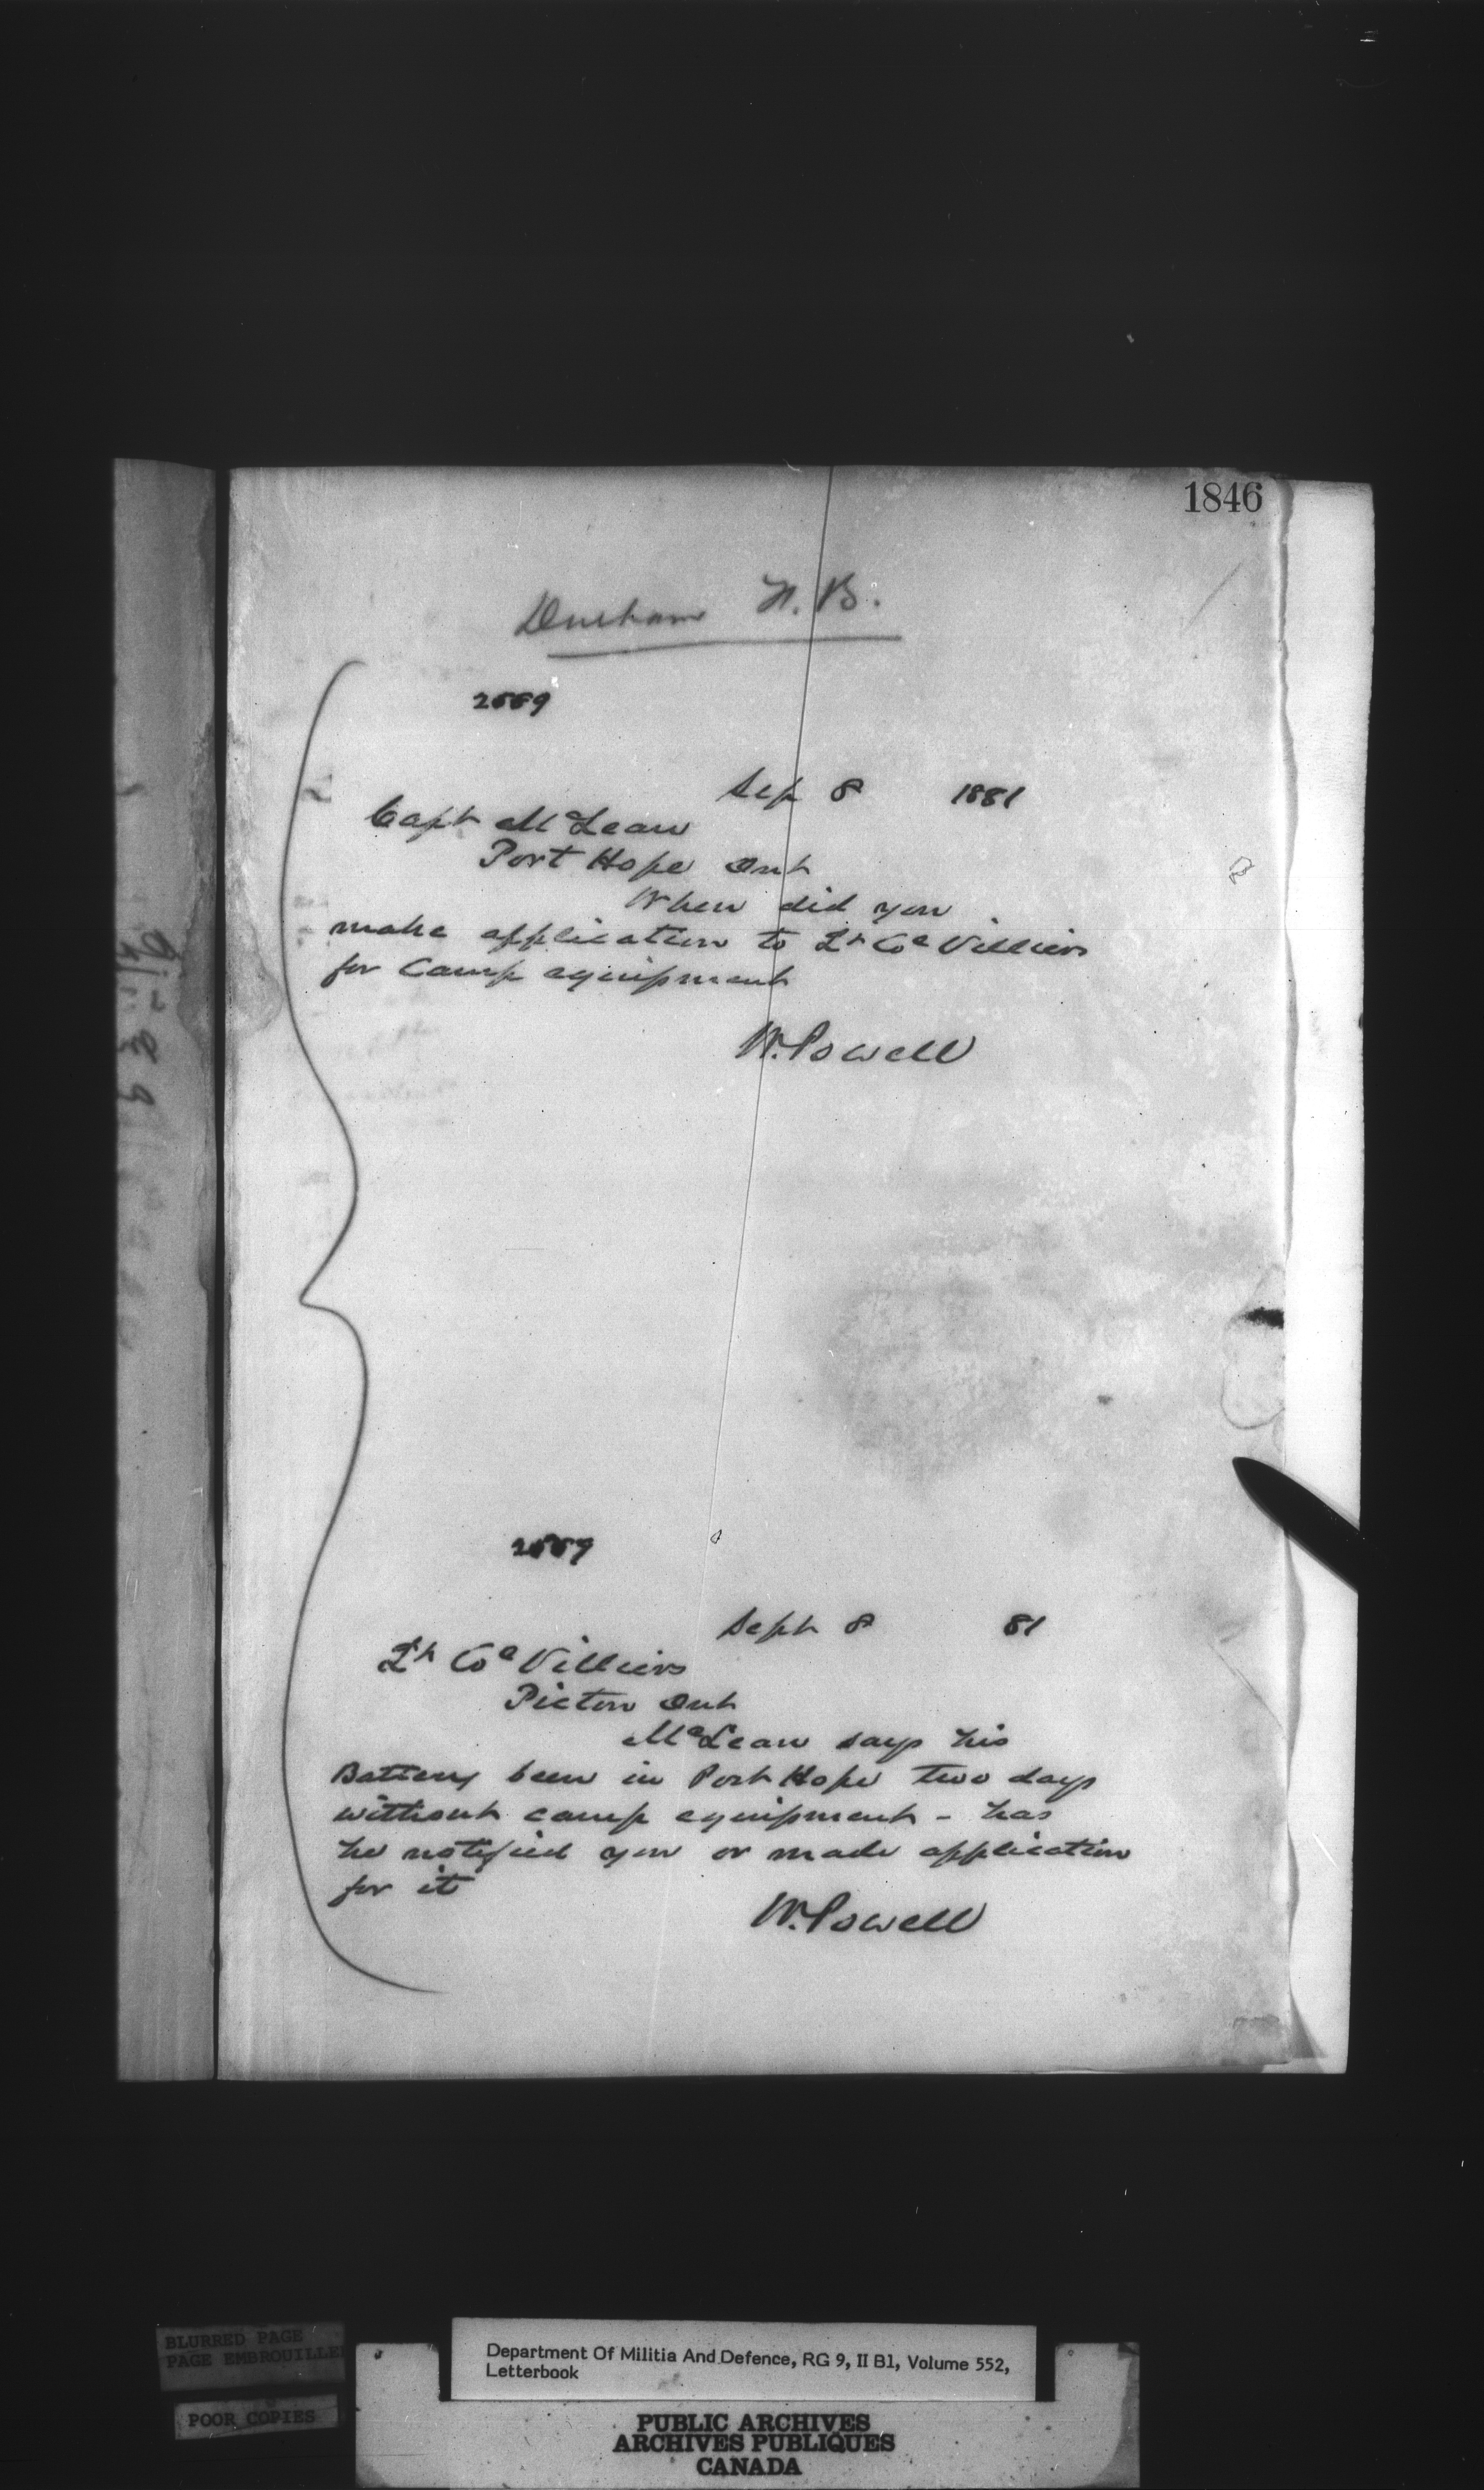 1846
Durham F. B.
Sep 8 1881
Capt McLean
Port Hope Ont
When did you
make application to Lt Col Villiers
for Camp equipment
W. Powell
Sept 8 81
Lt Col Villiers
Picton Ont
McLean says his
Battery been in Port Hope two days
without camp equipment - has
he notified you or made application
for it
W. Powell
BLURRED PAGE
PAGE EMBROUILLE
POOR COPIES
Department Of Militia And Defence, RG 9, II B1, Volume 552,
Letterbook
PUBLIC ARCHIVES
ARCHIVES PUBLIQUES
CANADA